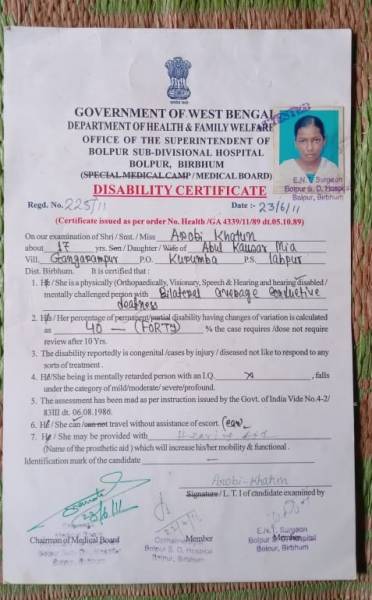 GOVERNMENT OF WEST BENGAL
DEPARTMENT OF HEALTH & FAMILY WELFARE
OFFICE OF THE SUPERINTENDENT OF
BOLPUR SUB-DIVISIONAL HOSPITAL
BOLPUR, BIRBHUM
(SPECIAL MEDICAL CAMP / MEDICAL BOARD)
DISABILITY CERTIFICATE
ATTESTED
E.N.T. Surgeon
Bolpur S. D. Hospital
Bolpur, Birbhum
Regd. No. 225/11 Date :- 23/6/11
(Certificate issued as per order No. Health /GA 4339/11/89 dt.05.10.89)
On our examination of Shri / Smt. / Miss Arobi Khatun
about 17 yrs. Son / Daughter / Wife of Abul Kausar Mia
Vill. Gangarampur P.O. Kurumba P.S. labpur
Dist. Birbhum. It is certified that :
1. He / She is a physically (Orthopaedically, Visionary, Speech & Hearing and hearing disabled /
mentally challenged person with Bilateral average conductive
deafness
2. His / Her percentage of permanent/partial disability having changes of variation is calculated
as 40 — (FORTY) % the case requires /dose not require
review after 10 Yrs.
3. The disability reportedly is congenital /cases by injury / diseased not like to respond to any
sorts of treatment .
4. He/She being is mentally retarded person with an I.Q. , falls
under the category of mild/moderate/ severe/profound.
5. The assessment has been mad as per instruction issued by the Govt. of India Vide No.4-2/
83HI dt. 06.08.1986.
6. He / She can /can not travel without assistance of escort. (can)
7. He / She may be provided with Hearing aid
( Name of the prosthetic aid ) which will increase his/her mobility & functional .
Identification mark of the candidate —
Arobi-Khatun
Signature / L. T. I of candidate examined by
23/6/11
Chairman of Medical Board Member Member
Bolpur S. D. Hospital
Bolpur, Birbhum
E.N.T. Surgeon
Bolpur S. D. Hospital
Bolpur, Birbhum